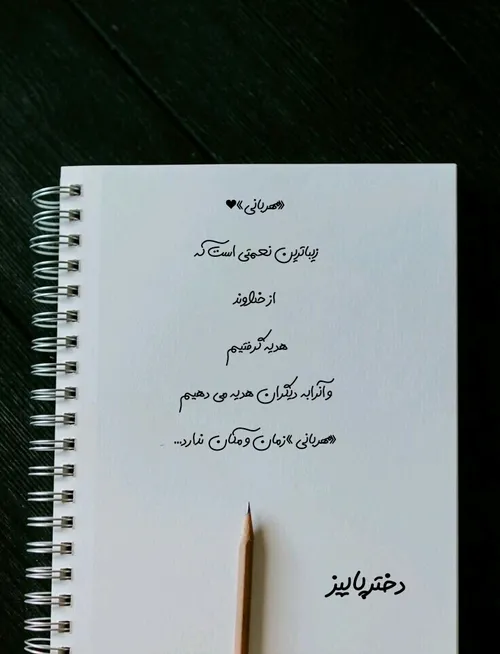 «مهربانی»♥
زیباترین نعمتی است که
از خداوند
هدیه گرفتیم
و آنرا به دیگران هدیه می دهیم
«مهربانی» زمان و مکان ندارد...
دختر پاییز